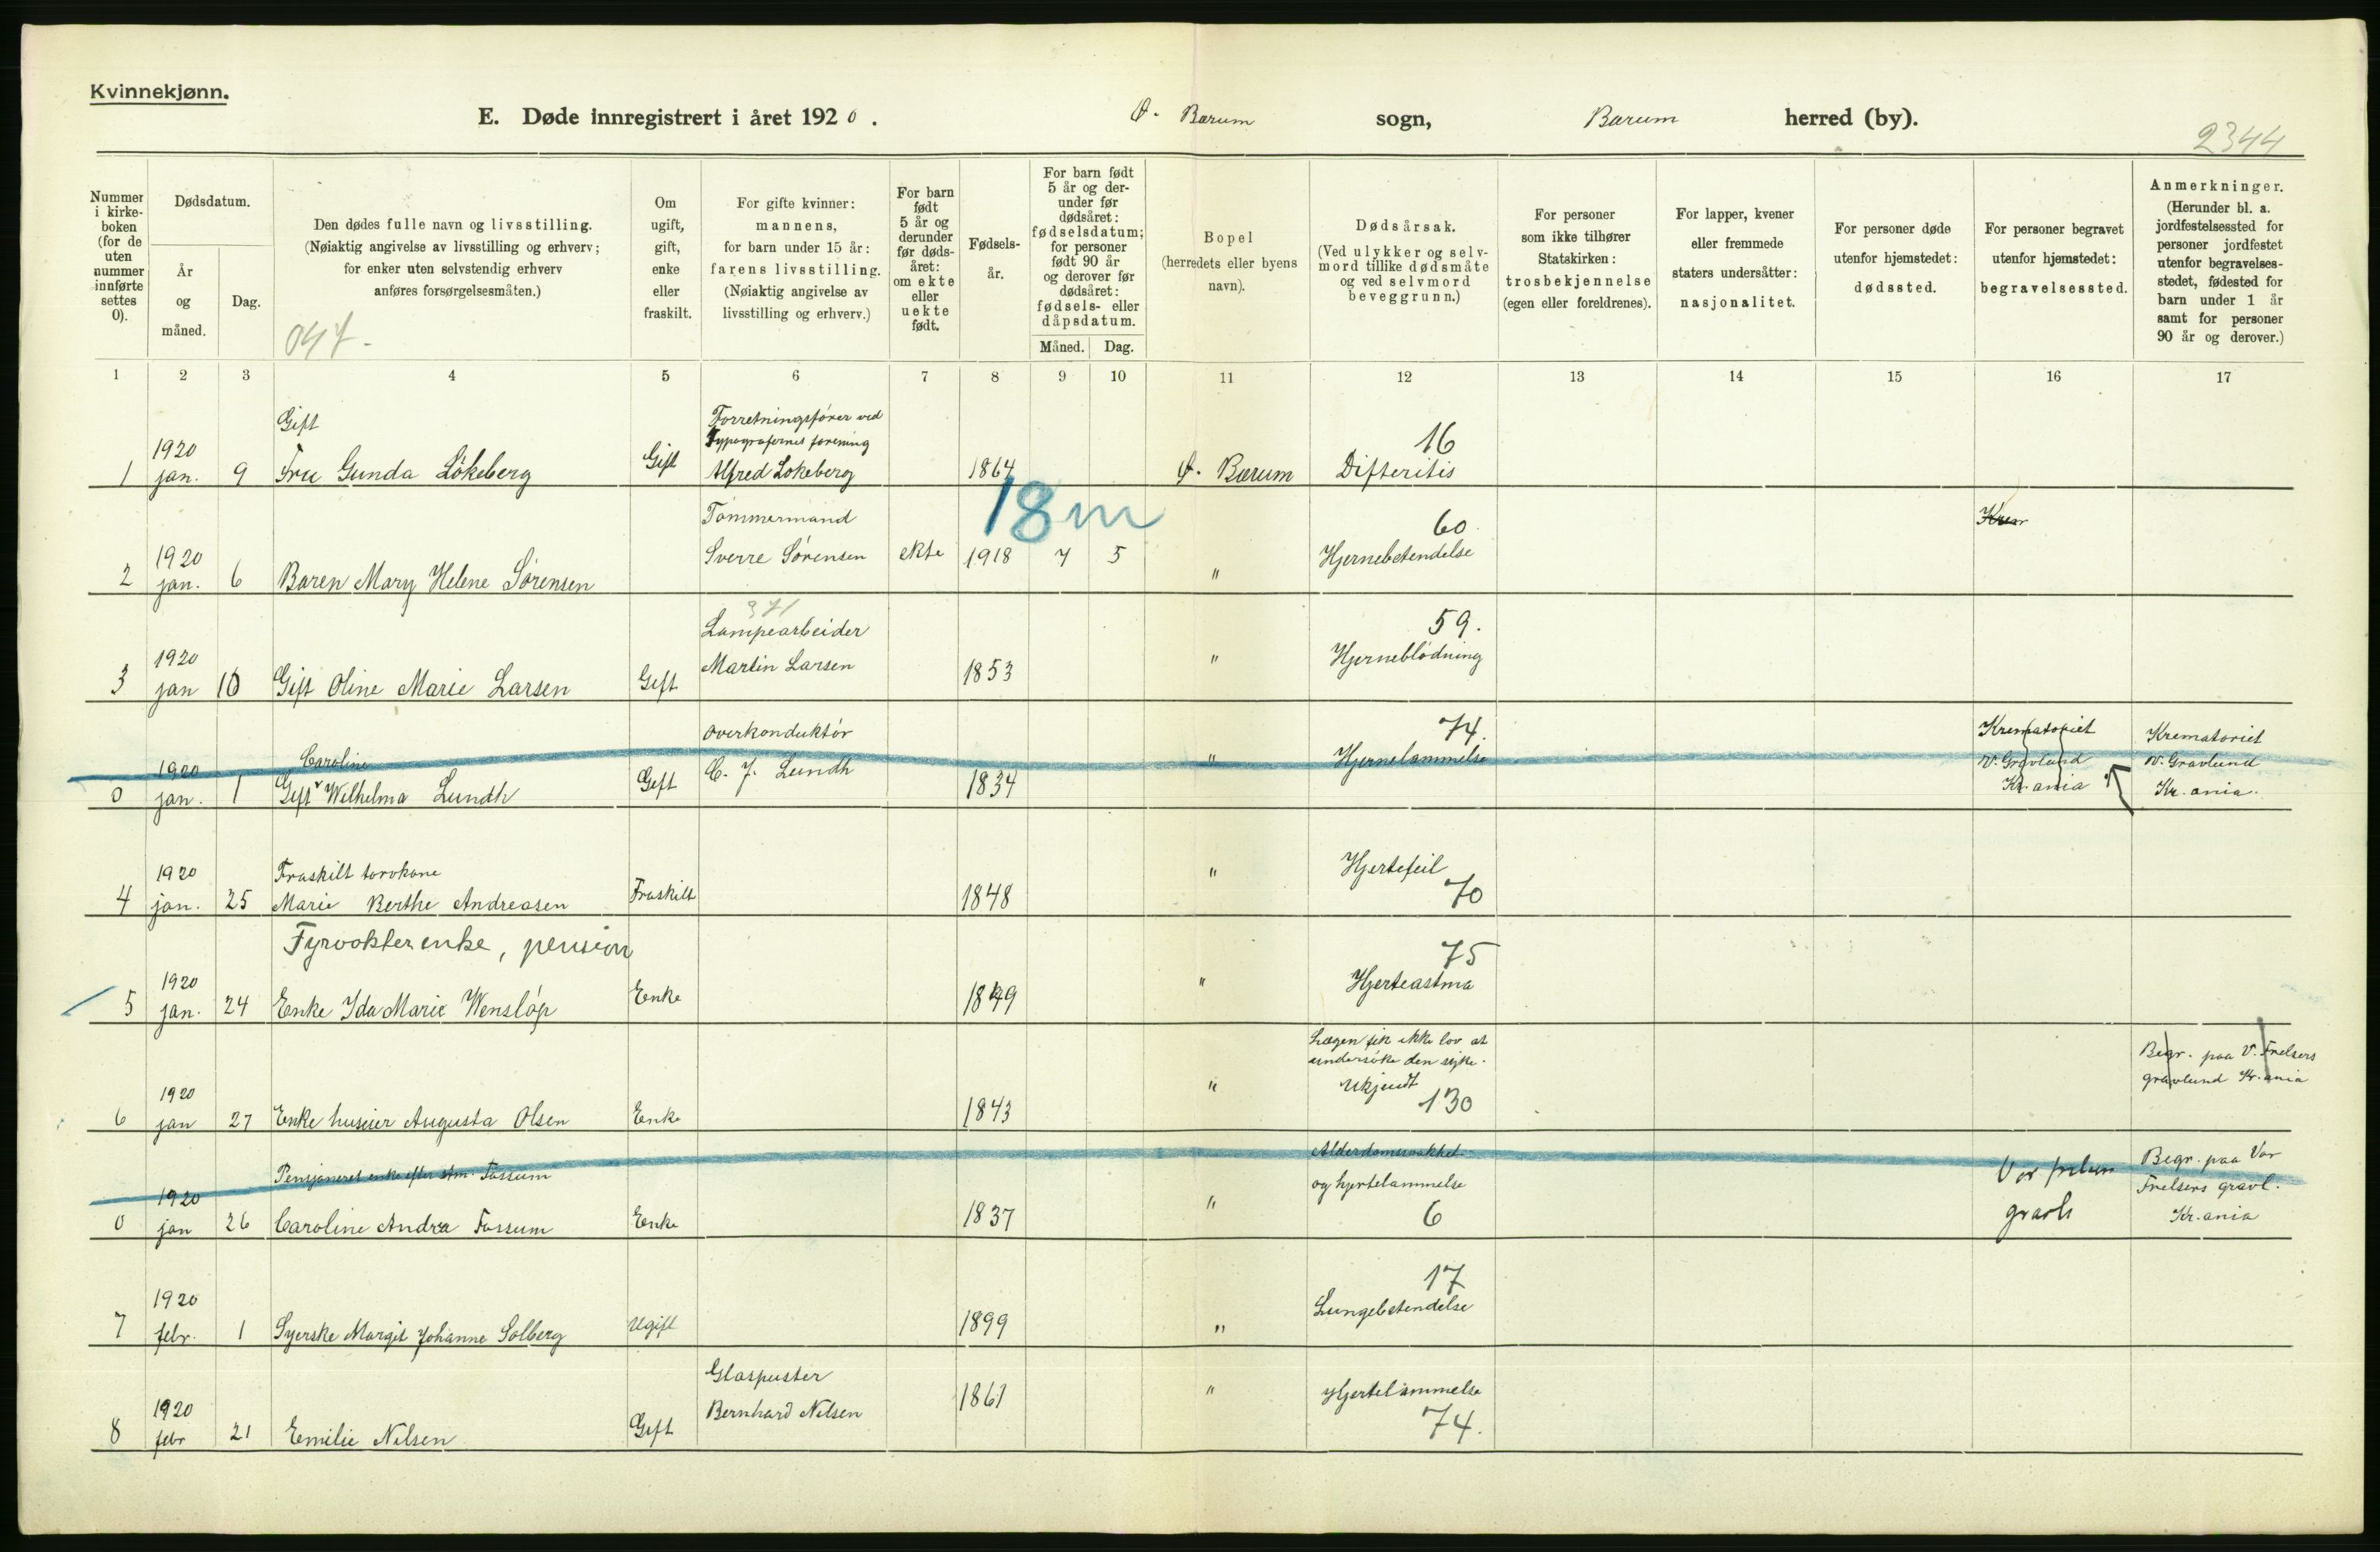 Kvinnekjønn.
E. Døde innregistrert i året 1920. Ø. Bærum sogn, Bærum herred (by).
2344
Nummer i kirke-boken (for de uten nummer innførte settes 0).
Dødsdatum.
År og måned.
Dag.
Den dødes fulle navn og livsstilling.
(Nøiaktig angivelse av livsstilling og erhverv;
for enker uten selvstendig erhverv
anføres forsørgelsesmåten.)
047-
Om ugift, gift, enke eller fraskilt.
For gifte kvinner:
mannens,
for barn under 15 år:
farens livsstilling.
(Nøiaktig angivelse av
livsstilling og erhverv.)
For barn født 5 år og derunder før døds-året: om ekte eller uekte født.
Fødsels-år.
For barn født 5 år og der-under før dødsåret: fødselsdatum; for personer født 90 år og derover før dødsåret: fødsels- eller dåpsdatum.
Måned. Dag.
Bopel
(herredets eller byens
navn).
Dødsårsak.
(Ved ulykker og selv-
mord tillike dødsmåte
og ved selvmord
beveggrunn.)
For personer
som ikke tilhører
Statskirken:
trosbekjennelse
(egen eller foreldrenes).
For lapper, kvener
eller fremmede
staters undersåtter:
nasjonalitet.
For personer døde
utenfor hjemstedet:
dødssted.
For personer begravet
utenfor hjemstedet:
begravelsessted.
Anmerkninger.
(Herunder bl. a.
jordfestelsessted for
personer jordfestet
utenfor begravelses-
stedet, fødested for
barn under 1 år
samt for personer
90 år og derover.)
1 2 3 4 5 6 7 8 9 10 11 12 13 14 15 16 17
Gift
Forretningsfører ved
Typografernes forening
16
1 1920 jan. 9 Fru Gunda Løkeberg Gift Alfred Løkeberg 1864 Ø. Bærum Difteritis
18 m
Tømmermand
60
Krem
2 1920 jan. 6 Baren Mary Helene Sørensen Sverre Sørensen ekte 1918 7 5 " Hjernebetendelse
371
Lampearbeider
59.
3 1920 jan 10 Gift Oline Marie Larsen Gift Martin Larsen 1853 " Hjerneblødning
Overkonduktør
74.
Caroline
0 1920 jan. 1 Gift Wilhelma Lundh Gift C. J. Lundh 1834 " Hjernelammelse
Krematoriet
V. Gravlund
Kr.ania
Krematoriet
V. Gravlund
Kr.ania.
Fraskilt torvkone
4 1920 jan. 25 Marie Berthe Andreasen Fraskilt 1848 " Hjertefeil
70
Fyrvokter enke, pension
75
5 1920 jan. 24 Enke Ida Marie Wensløp Enke 1849 " Hjerteastma
Lægen fik ikke lov at
undersøke den syke.
Ukjendt
130
Begr. paa V. Frelsers
gravlund Kr.ania
6 1920 jan 27 Enke husier Augusta Olsen Enke 1843 "
Pensjoneret enke efter Am. Fossum
Alderdomssvakhet
og hjertelammelse
6
0 1920 jan 26 Caroline Andrea Fossum Enke 1837 "
Vor frelsers
gravl
Begr. paa Vor
Frelsers gravl.
Kr.ania
17
7 1920 febr. 1 Syerske Margit Johanne Solberg Ugift 1899 " Lungebetendelse
Glaspuster
8 1920 febr 21 Emilie Nilsen Gift Bernhard Nilsen 1861 " Hjertelammelse
74.